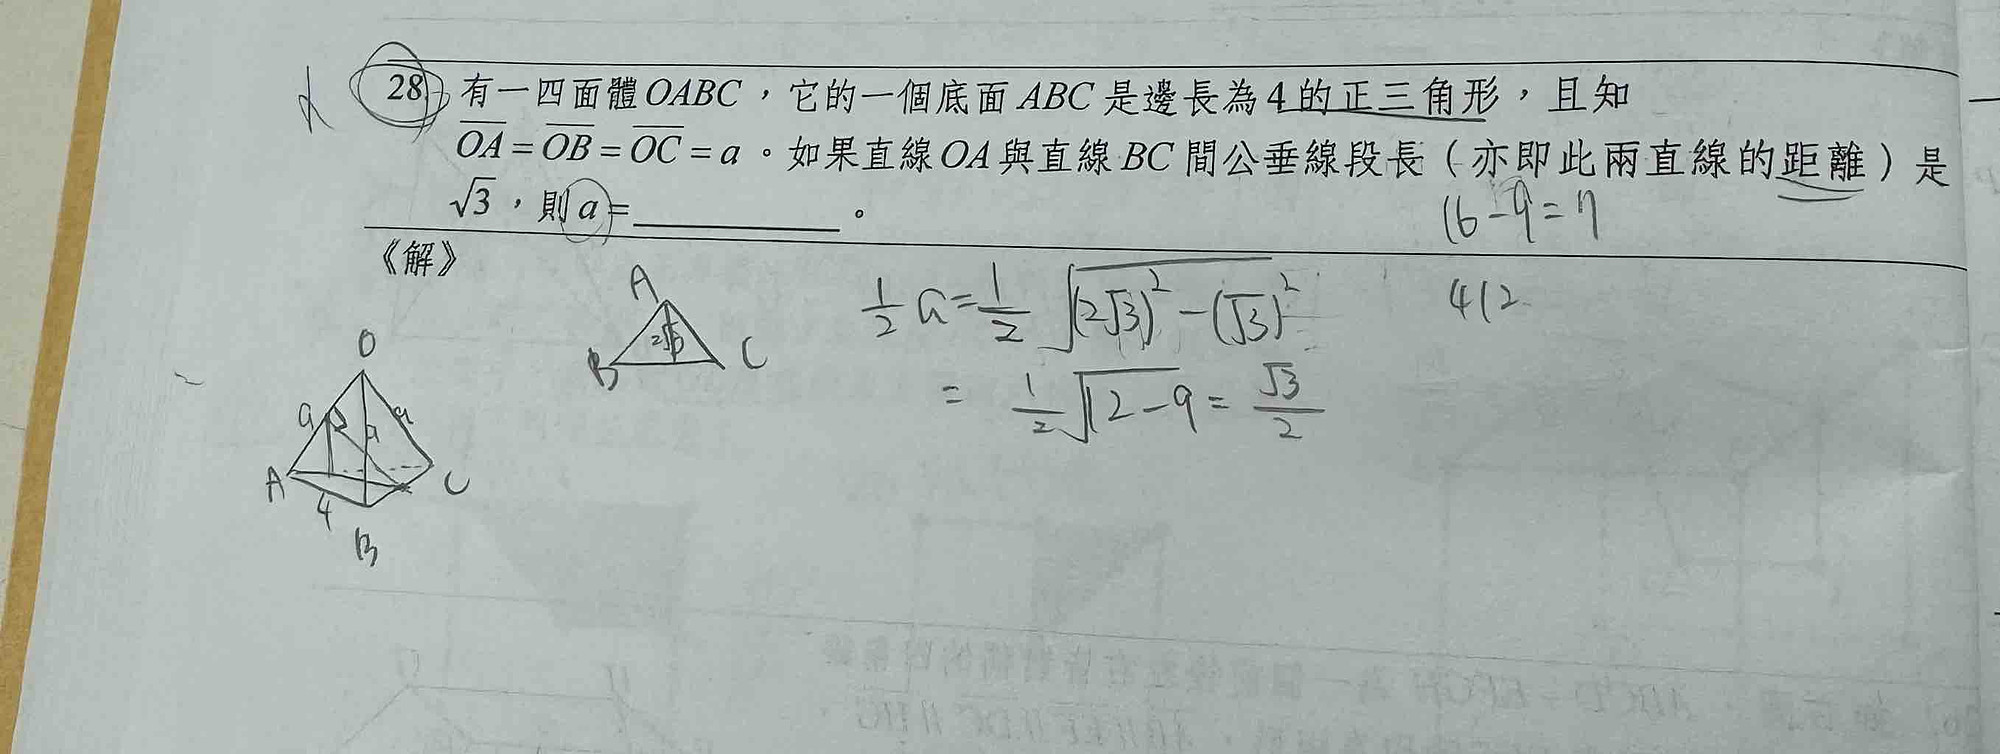 28. 有一四面體OABC，它的一個底面ABC是邊長為4的正三角形，且知
OA=OB=OC=a。如果直線OA與直線BC間公垂線段長（亦即此兩直線的距離）是
√3，則a=__________。
16-9=7
《解》
A
B
C
2√3
1/2 a = 1/2 √((2√3)²-(√3)²)
= 1/2 √(12-9) = √3/2
412
O
a
a
a
A
4
B
C